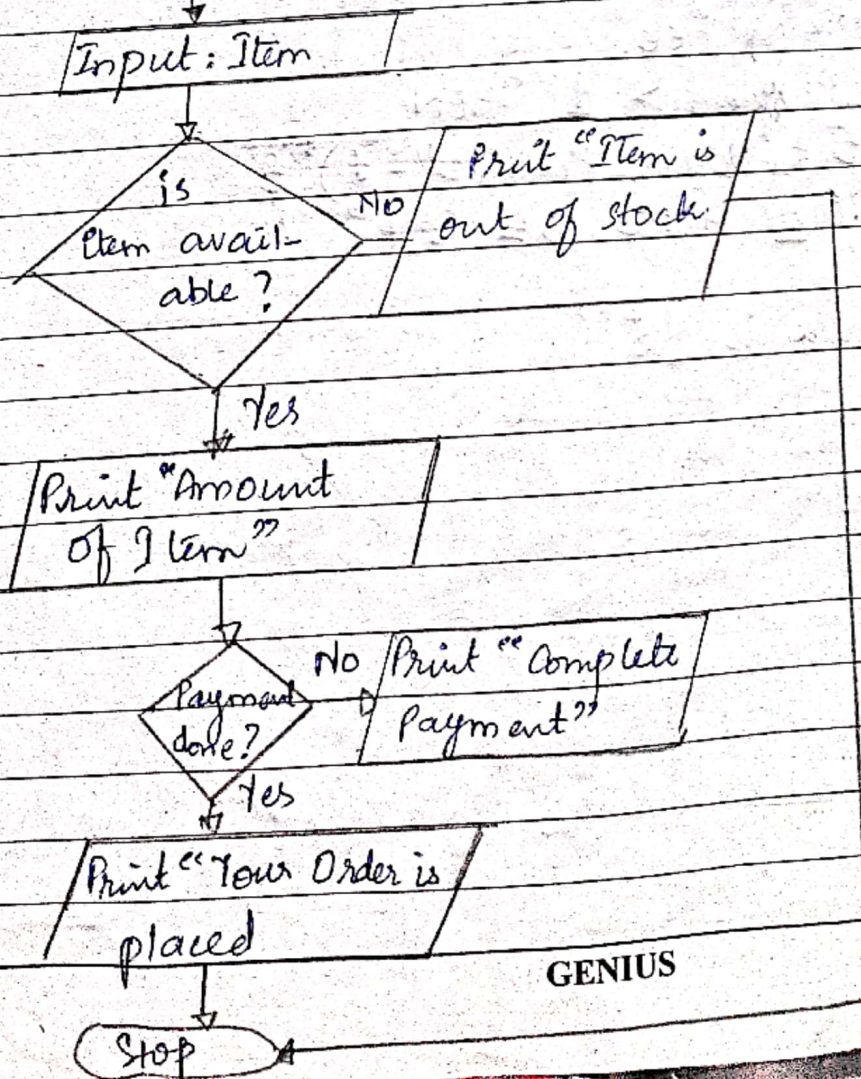 Input : Item
is
item avail-
able ?
No
Print "Item is
out of stock
Yes
Print "Amount
of Item"
Payment
done?
No
Print "Complete
Payment"
Yes
Print "Your Order is
placed
GENIUS
Stop